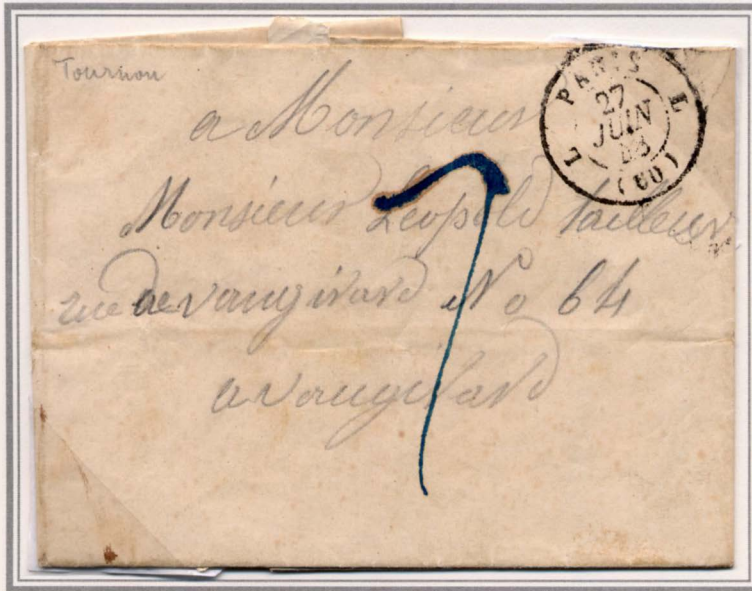 Tournon
PARIS
L L
27
JUIN
(60)
a Monsieur
Monsieur Léopold tailleur
rue de vaugirard No 64
a vaugirard
7